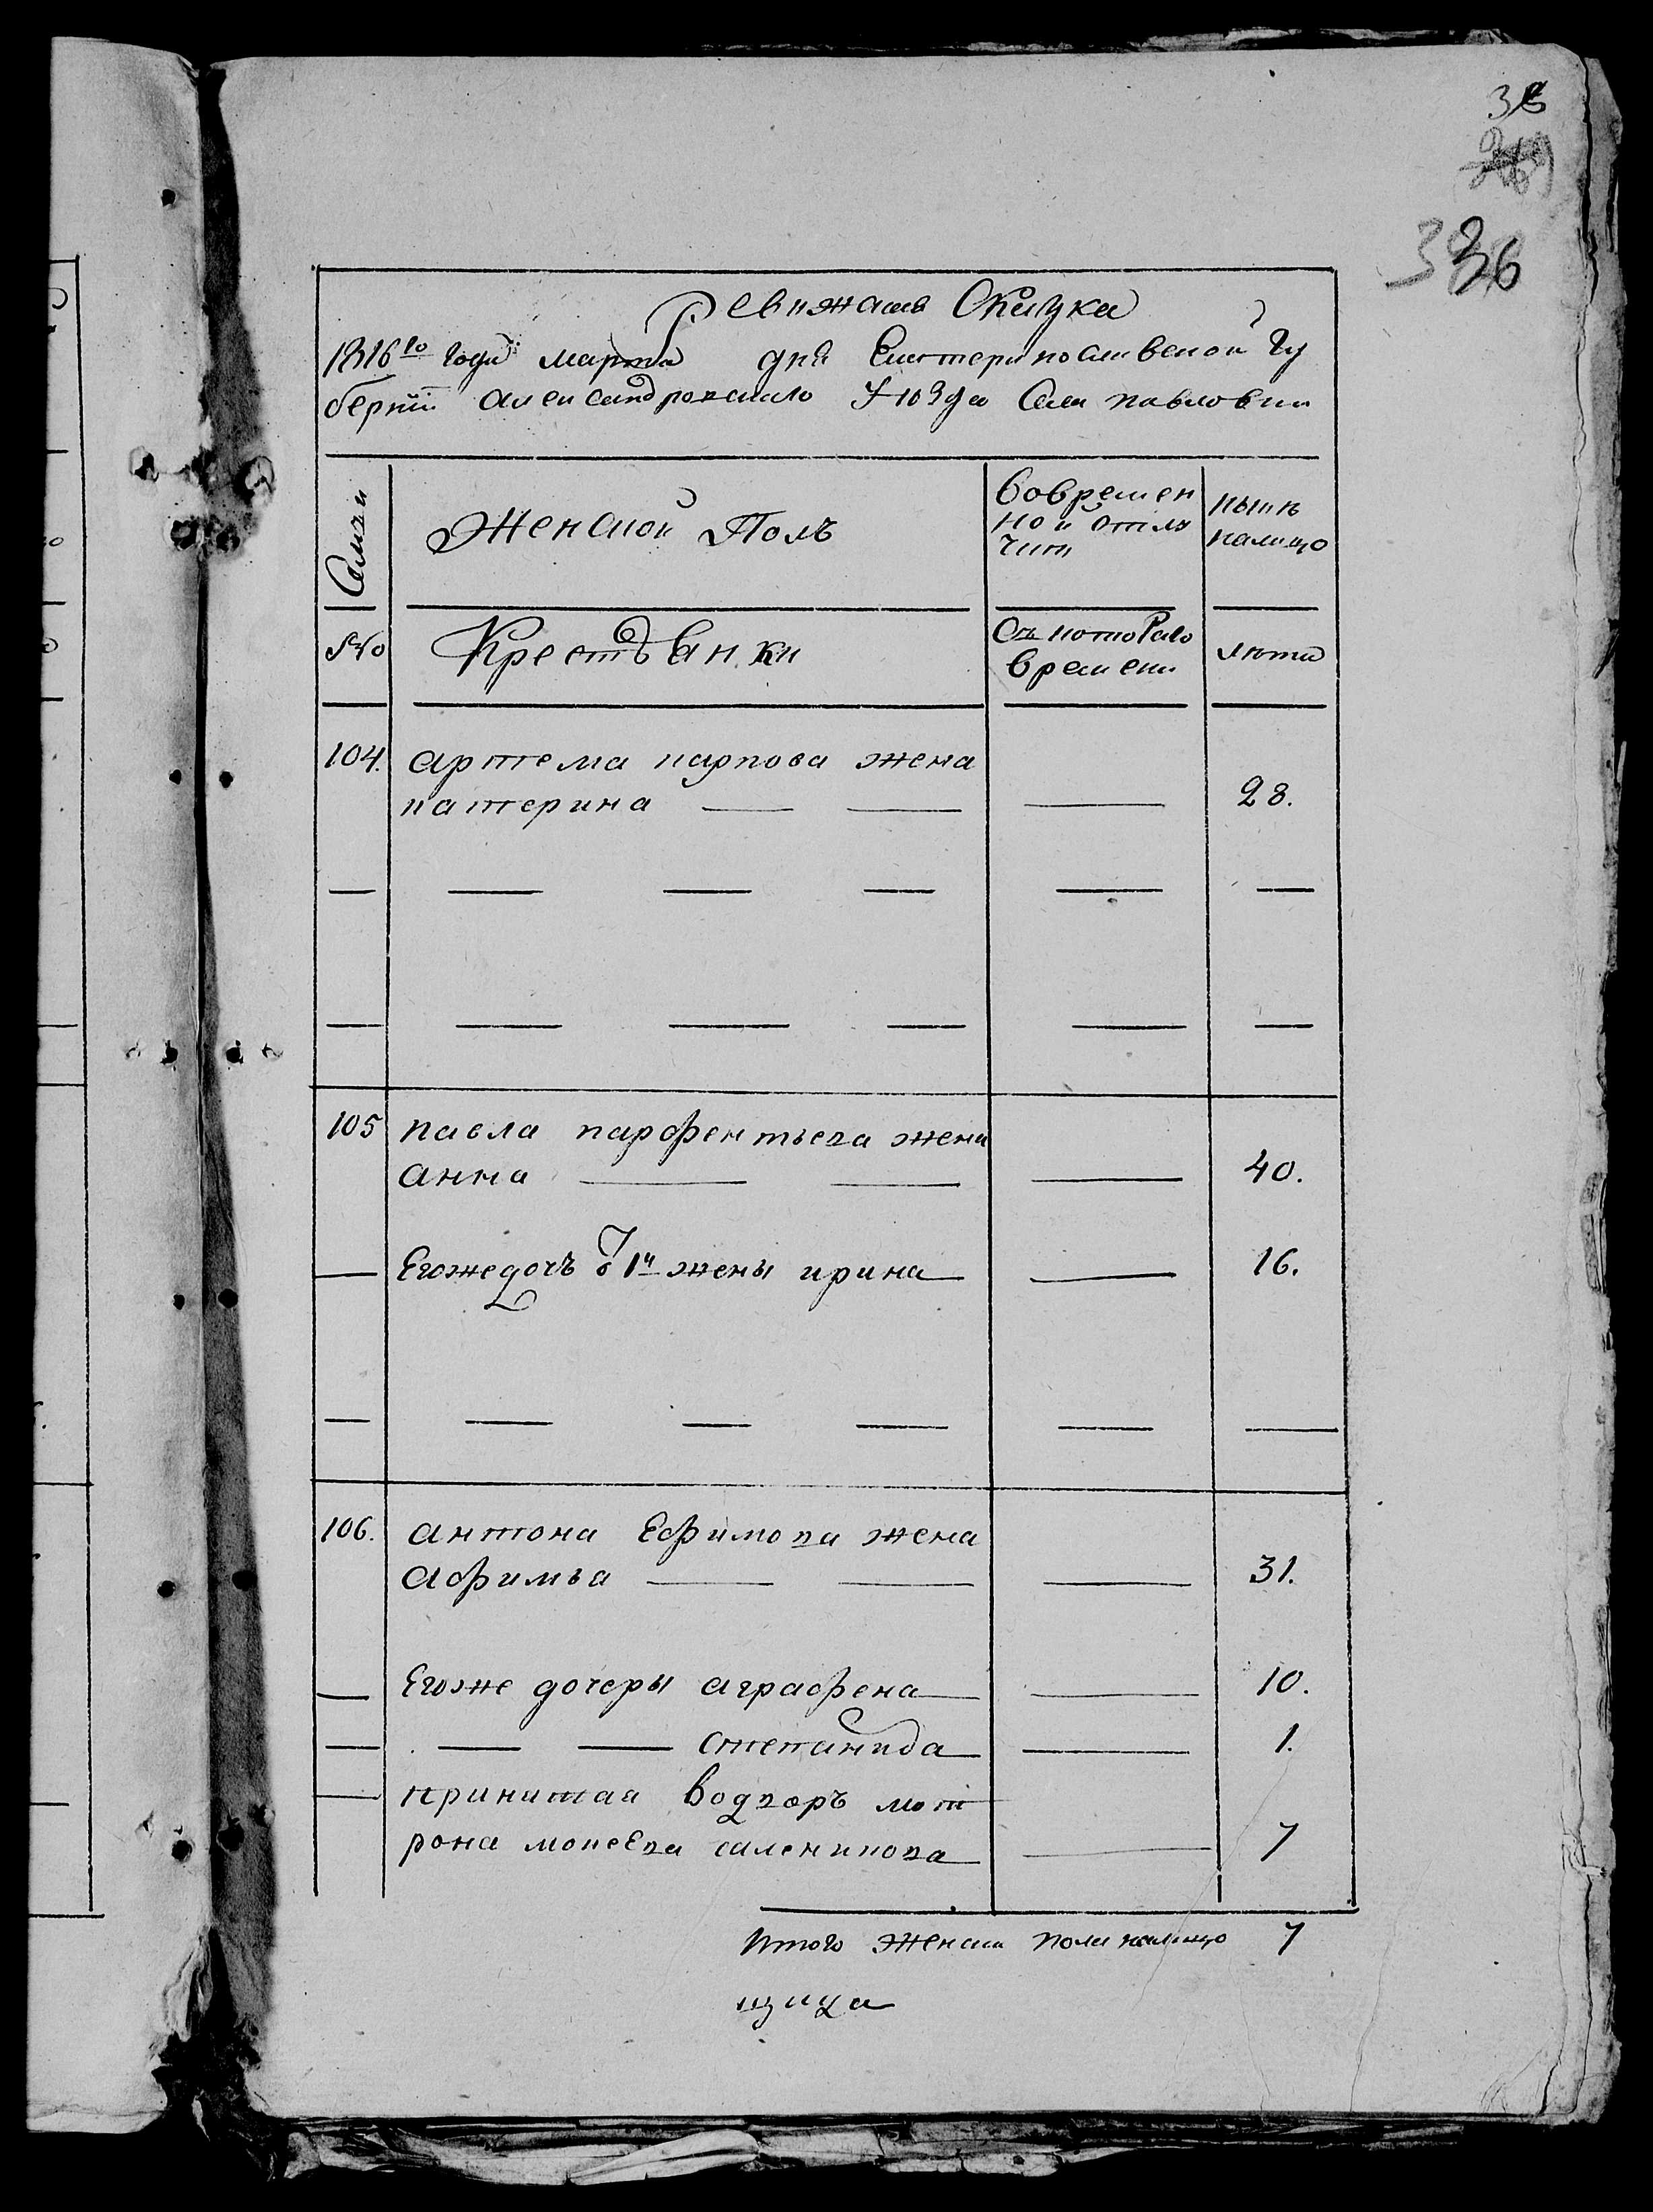 336
Ревижская Скаска
1816го Года марта дня Екатеринославской Гу
берніи александровскаго Уезда Села павловки
Семьи
Женской Полъ
Вовремен
ной отлу
чки
ныне
налицо
№о
Крестьянки
Съ котораго
времени
лета
104. артема карпова жена
катерина 28.
105 павла парфентьева жена
анна 40.
Егожедочь от 1й жены ирина 16.
106. антона Ефимова жена
афимья 31.
Егоже дочеры аграфена 10.
степанида 1.
принятая водворъ мот
рона мокеева саленикова 7
Итого женска пола налицо 7